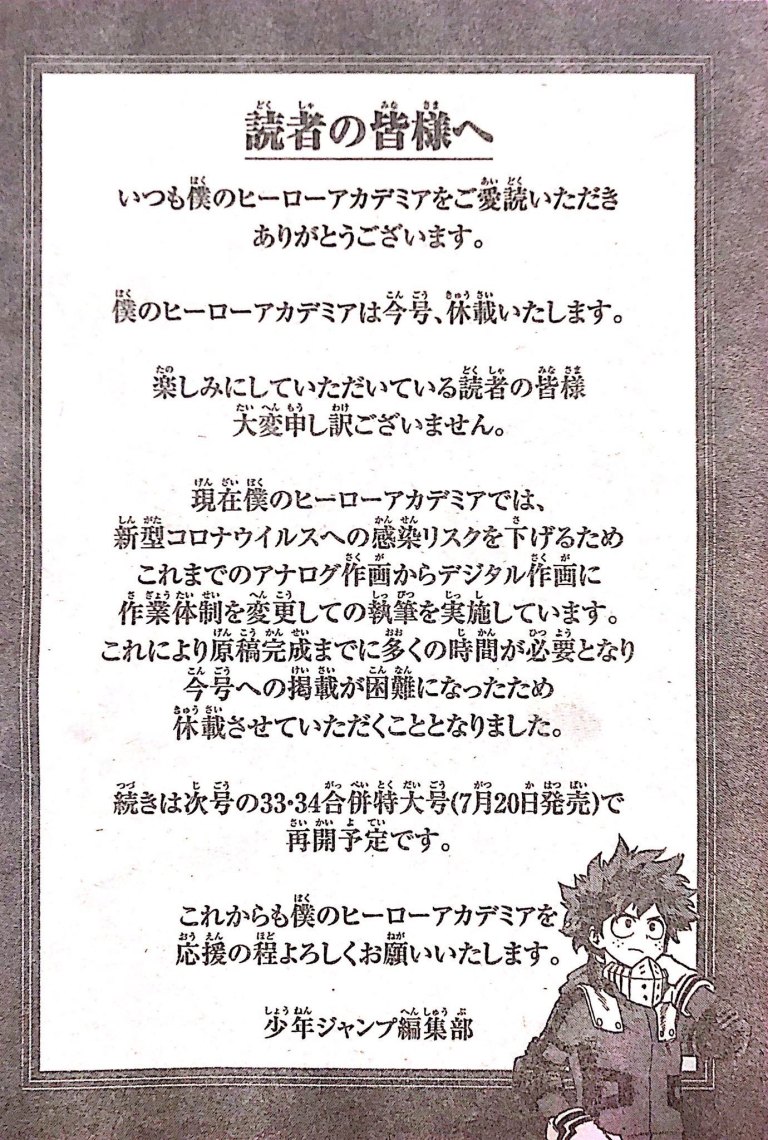 読者の皆様へ
いつも僕のヒーローアカデミアをご愛読いただき
ありがとうございます。
僕のヒーローアカデミアは今号、休載いたします。
楽しみにしていただいている読者の皆様
大変申し訳ございません。
現在僕のヒーローアカデミアでは、
新型コロナウイルスへの感染リスクを下げるため
これまでのアナログ作画からデジタル作画に
作業体制を変更しての執筆を実施しています。
これにより原稿完成までに多くの時間が必要となり
今号への掲載が困難になったため
休載させていただくこととなりました。
続きは次号の33・34合併特大号(7月20日発売)で
再開予定です。
これからも僕のヒーローアカデミアを
応援の程よろしくお願いいたします。
少年ジャンプ編集部